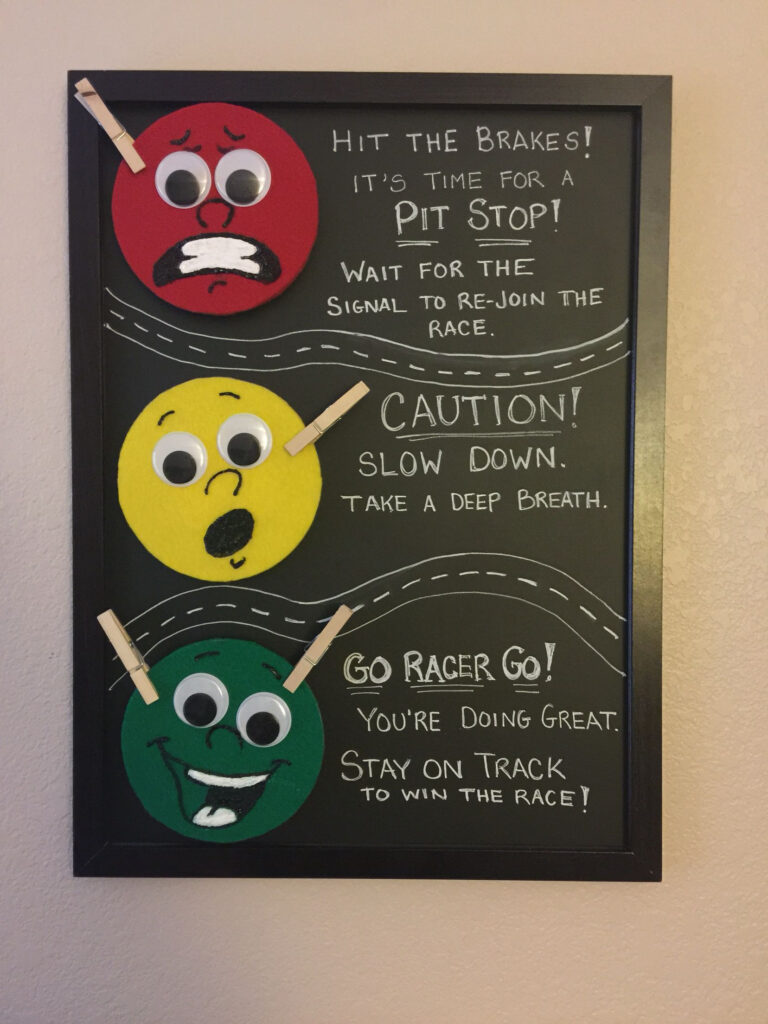 HIT THE BRAKES!
IT'S TIME FOR A
PIT STOP!
WAIT FOR THE
SIGNAL TO RE-JOIN THE
RACE.
CAUTION!
SLOW DOWN.
TAKE A DEEP BREATH.
GO RACER GO!
YOU'RE DOING GREAT.
STAY ON TRACK
TO WIN THE RACE!